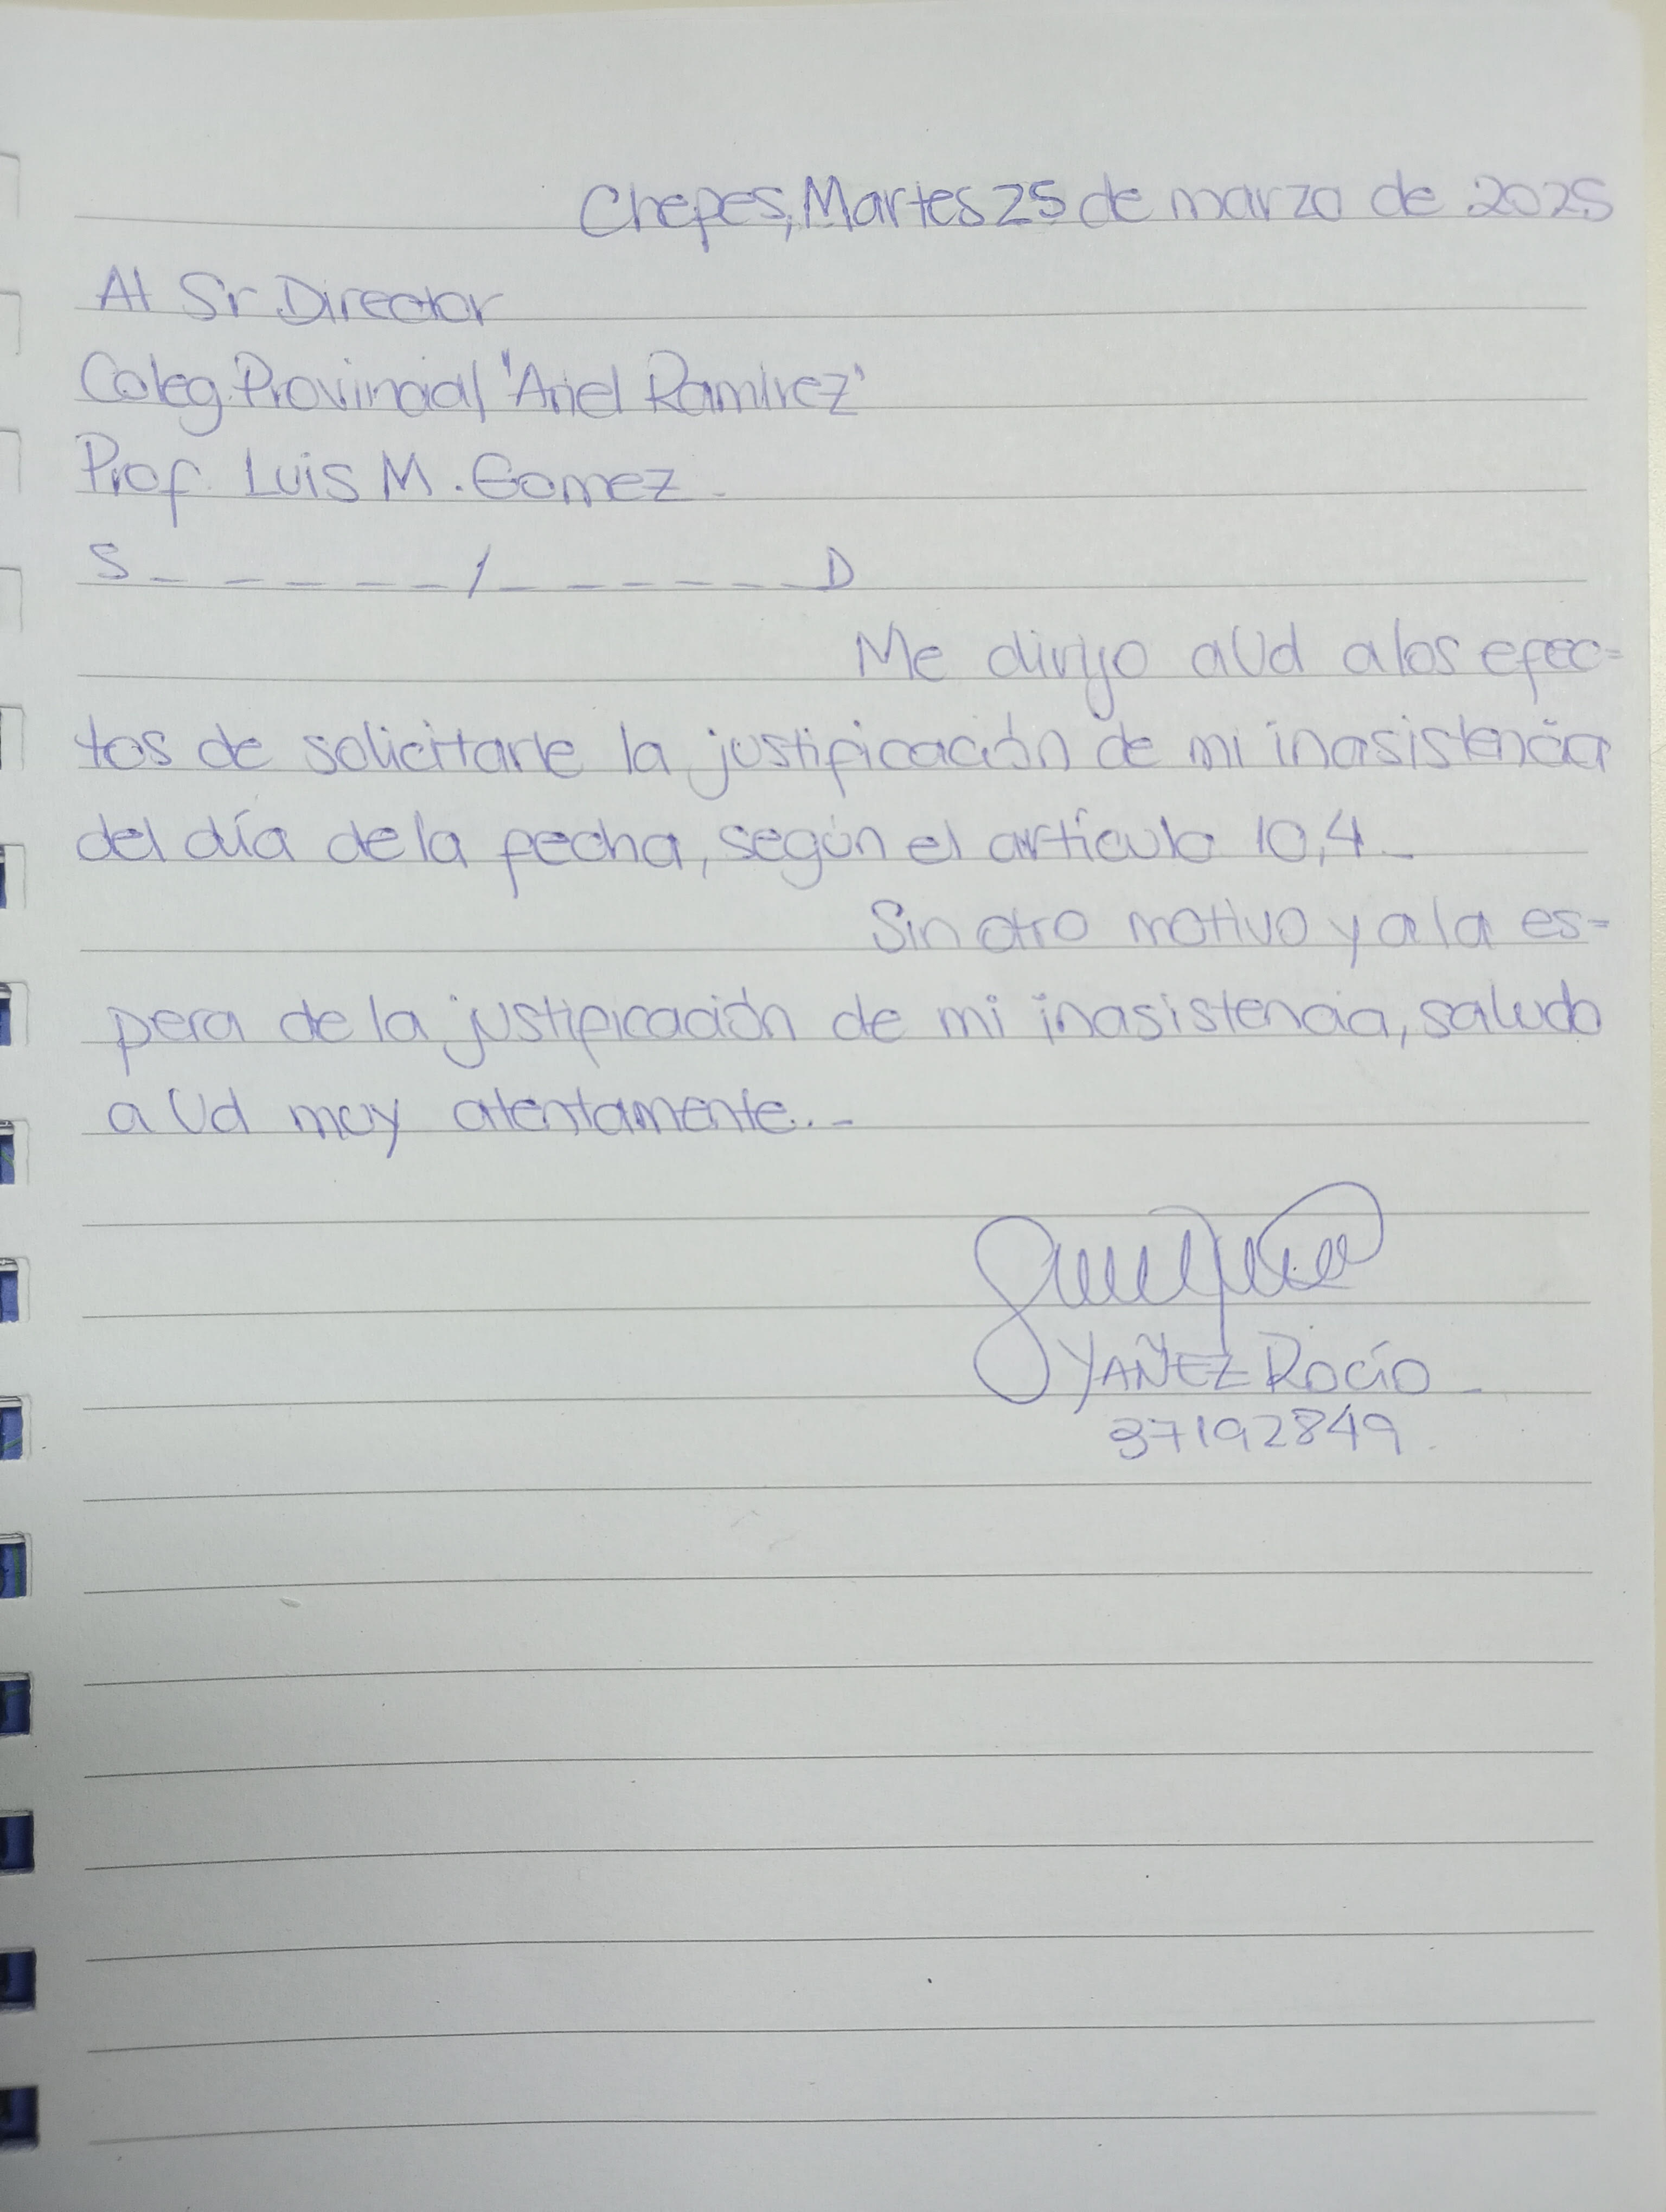 Chepes, Martes 25 de marzo de 2025
Al Sr Director
Coleg. Provincial "Ariel Ramirez"
Prof. Luis M. Gomez.
S _ _ _ _ _ / _ _ _ _ _ D
Me dirijo a Ud a los efec=
tos de solicitarle la justificación de mi inasistencia
del día de la fecha, según el artículo 10,4_
Sin otro motivo y a la es=
pera de la justificación de mi inasistencia, saludo
a Ud muy atentamente._
YAÑEZ ROCÍO_
37192849.